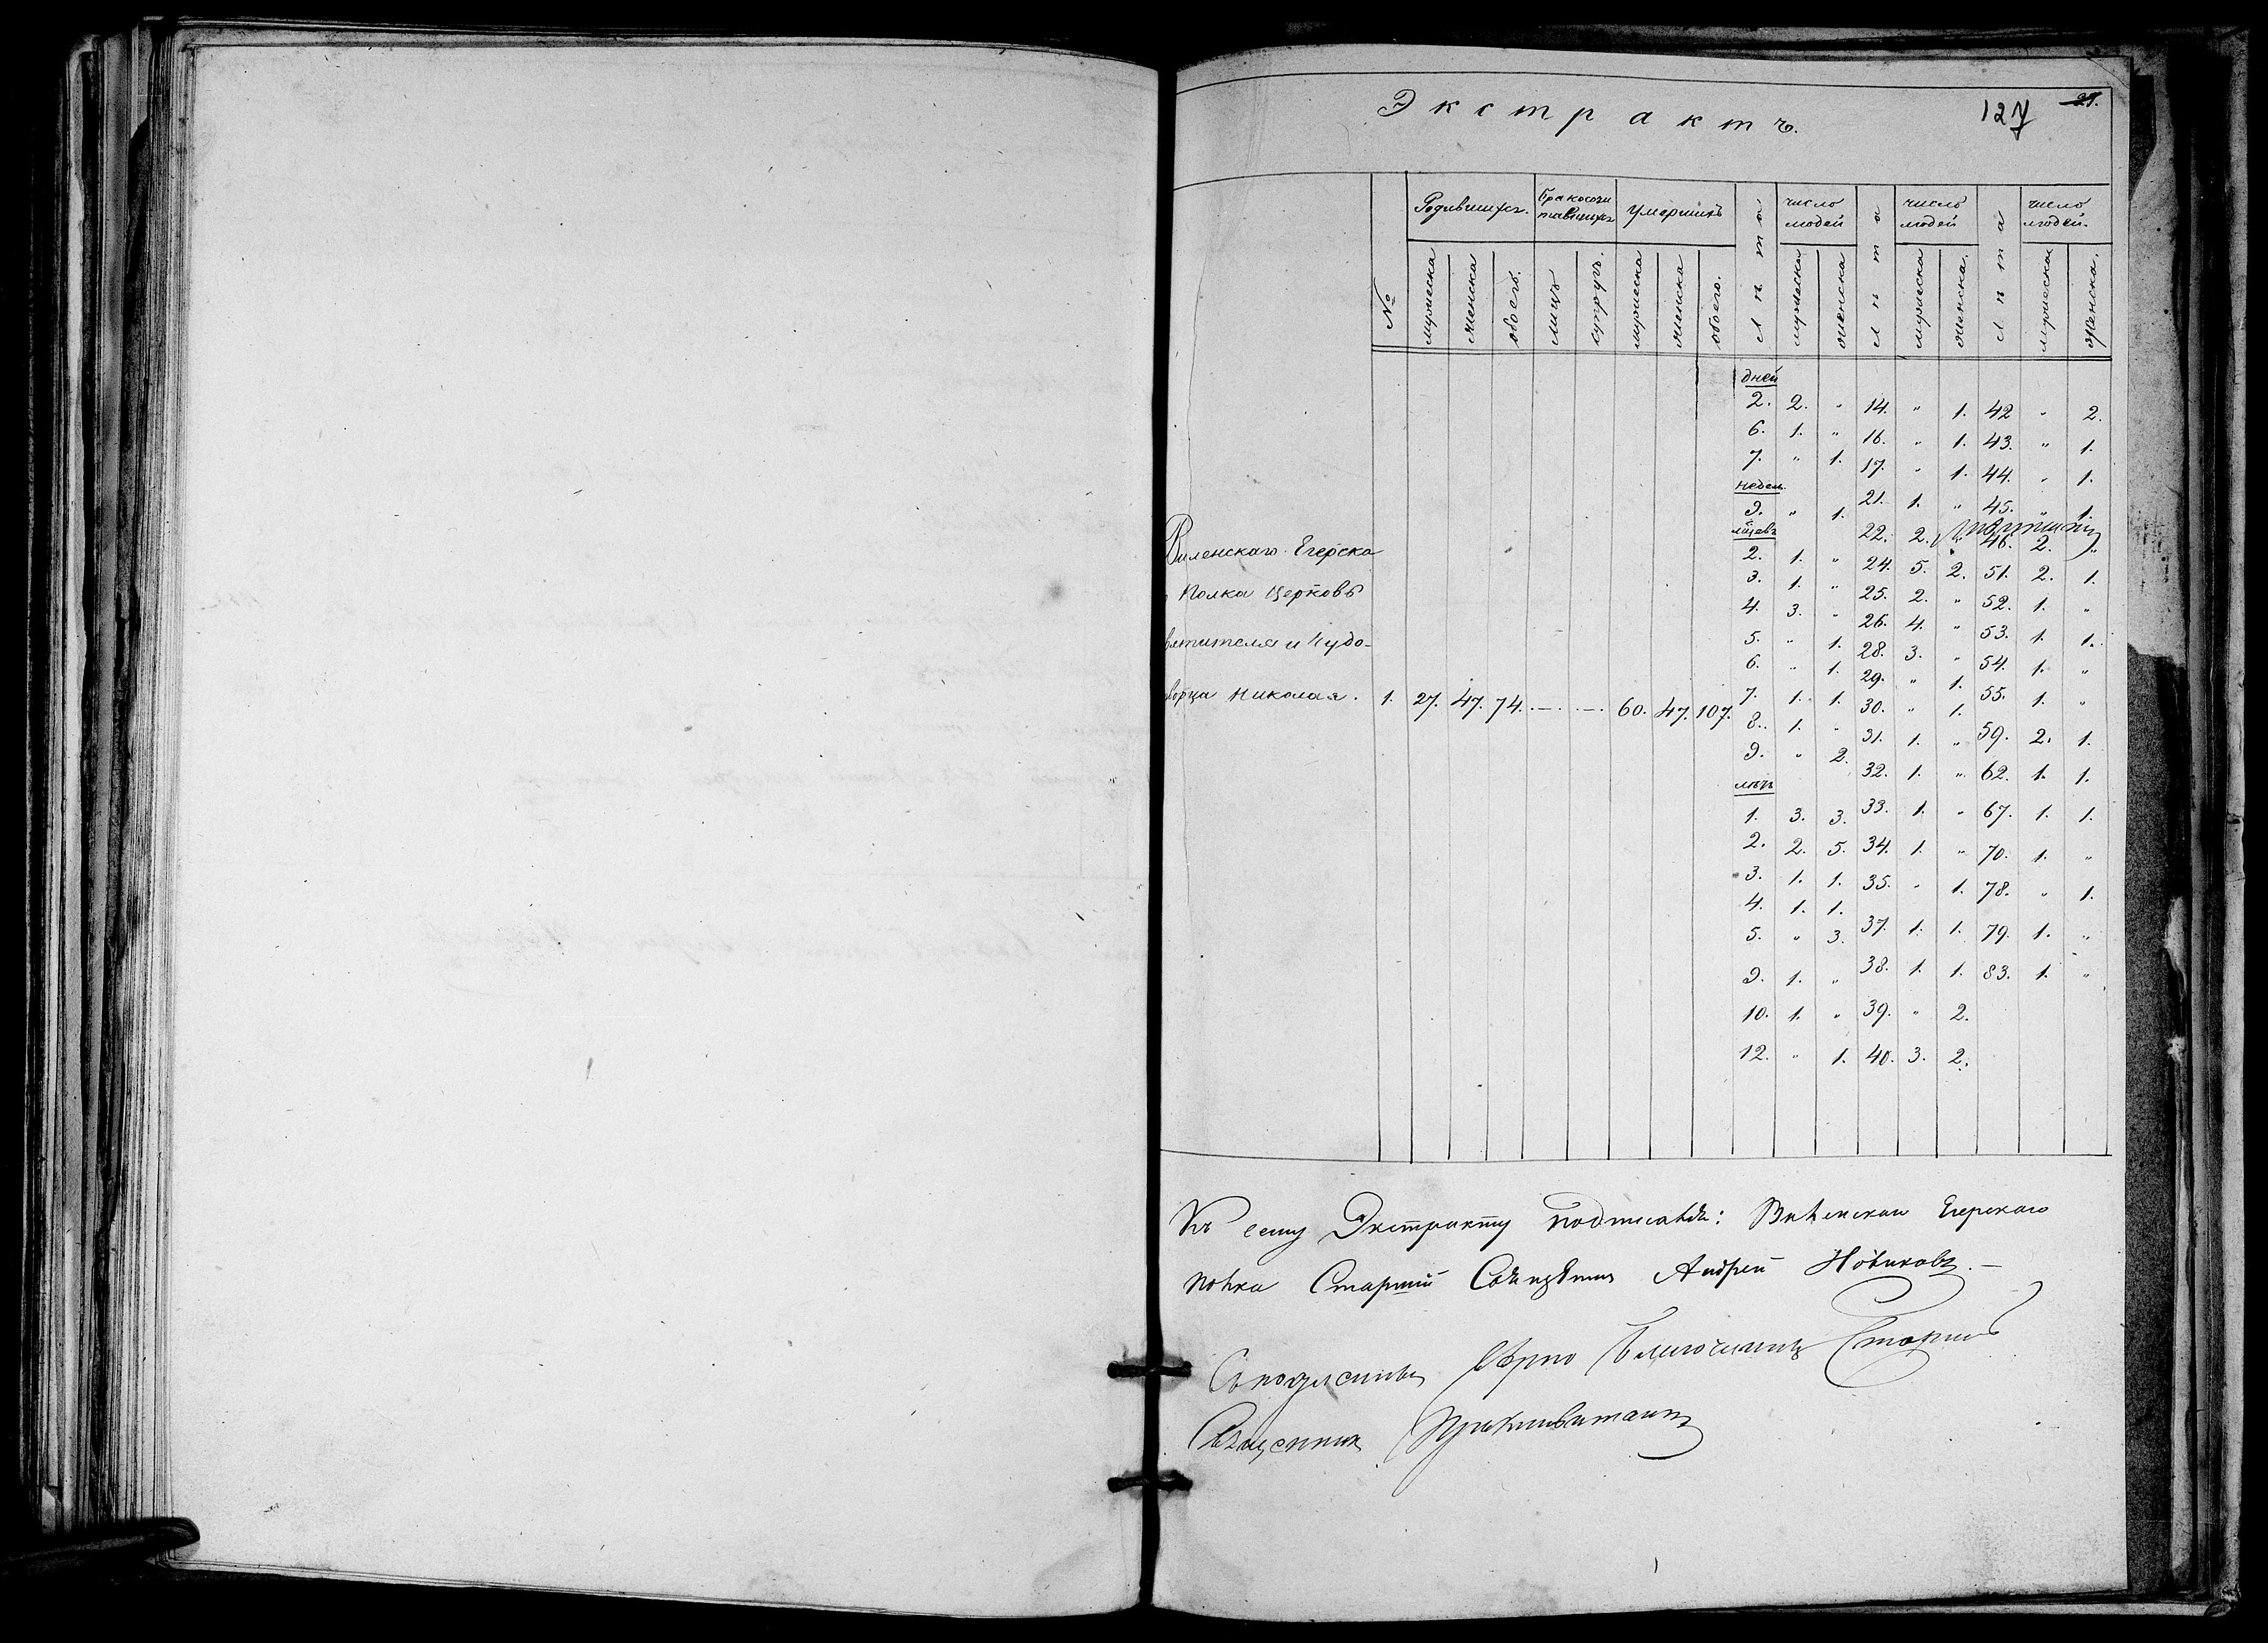 Экстрактъ.
127
27.
№
Родившихся.
Бракосочи
тавшихся
Умершихъ
лѣта
число
людей
лѣта
число
людей
лѣта
число
людей.
мужеска
женска
обоего.
лицъ
супругъ.
мужеска
женска
обоего.
мужеска
женска
мужеска
женска.
мужеска
женска.
дней
2. 2. " 14. " 1. 42 " 2.
6. 1. " 16. " 1. 43. " 1.
7. " 1. 17. " 1. 44. " 1.
недел.
9. " 1. 21. 1. " 45. " 1.
мѣсяцъ
22. 2. " 46. 2. "
2. 1. " 24. 5. 2. 51. 2. 1.
3. 1. " 25. 2. " 52. 1. "
4. 3. " 26. 4. " 53. 1. 1.
5. " 1. 28. 3. " 54. 1. "
6. " 1. 29. " 1. 55. 1. "
7. 1. 1. 30. " 1.
8. 1. " 31. 1. " 59. 2. 1.
9. " 2. 32. 1. " 62. 1. 1.
лѣтъ
1. 3. 3. 33. 1. " 67. 1. 1.
2. 2. 5. 34. 1. " 70. 1. "
3. 1. 1. 35. " 1. 78. " 1.
4. 1. 1.
5. " 3. 37. 1. 1. 79. 1. "
9. 1. " 38. 1. 1. 83. 1. "
10. 1. " 39. " 2.
12. " 1. 40. 3. 2.
Виленскаго Егерска
Полка Церковь
вятителя и Чудо-
ворца Николая. 1. 27. 47. 74. — — 60. 47. 107.
Къ сему Экстракту подписалъ: Виленскаго Егерскаго
полка Старшій Священникъ Андрей Новиковъ.—
Съ подлиннымъ вѣрно Благочинный Старшій
Священникъ